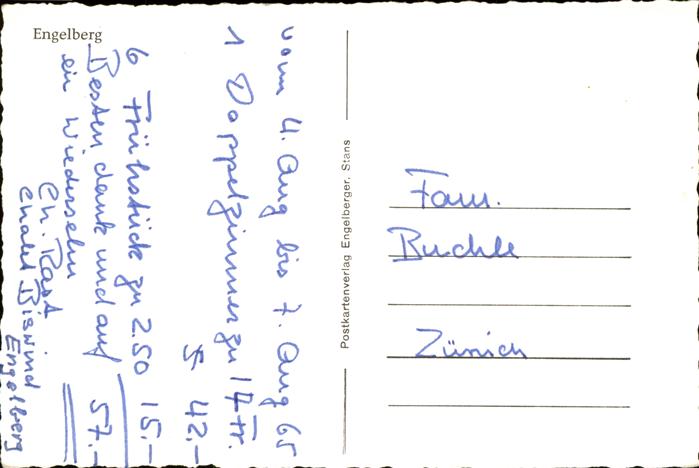 Engelberg
vom 4. Aug bis 7. Aug 65
1 Doppelzimmer zu 14 Fr.
42.–
6 Frühstück zu 2.50 15.–
Besten dank und auf 57.–
ein Wiedersehn
Ch. Rast
Chalet Biswind
Engelberg
Postkartenverlag Engelberger, Stans
Fam.
Buchle
Zürich